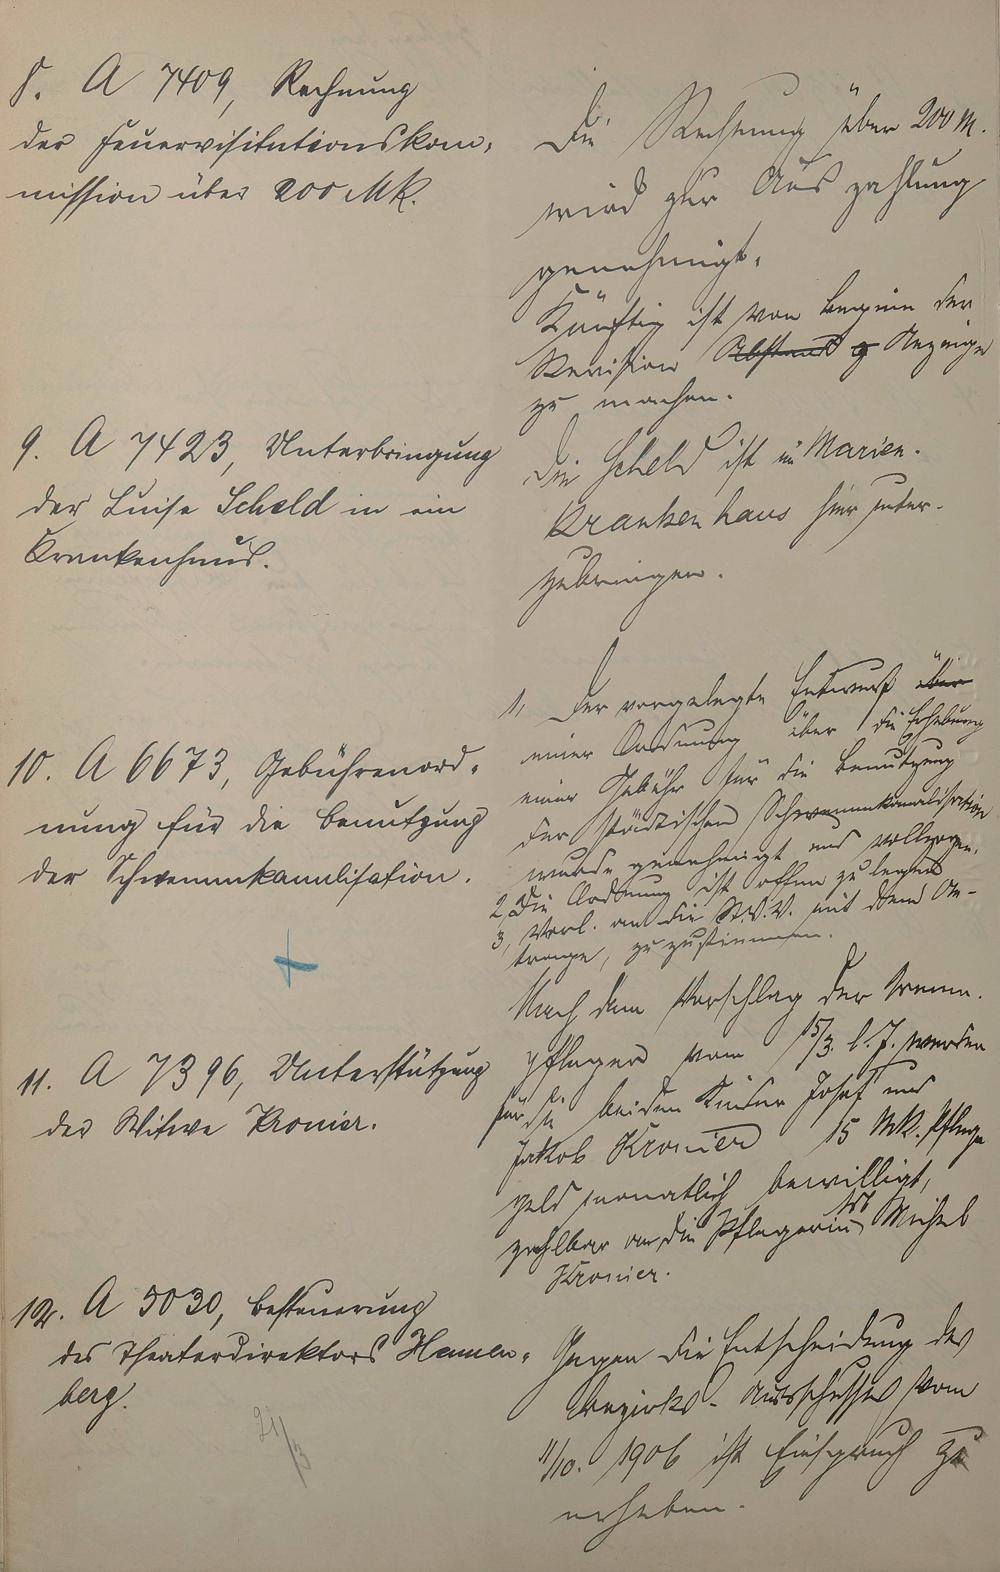 8. A 7409, Rechnung
der Feuervisitationskom-
mission über 200 Mk.
Die Rechnung über 200 M.
wird zur Auszahlung
genehmigt.
Künftig ist von Beginn der
Revision Abstand g Anzeige
zu machen.
9. A 7423, Unterbringung
der Luise Scheld in ein
Krankenhaus.
Die Scheld ist im Marien-
krankenhaus hier unter-
zubringen.
10. A 6673, Gebührenord-
nung für die Benutzung
der Schwemmkanalisation.
1, Der vorgelegte Entwurf über
einer Ordnung über die Erhebung
einer Gebühr für die Benutzung
der städtischen Schwemmkanalisation
wurde genehmigt und vollzogen.
2, Die Ordnung ist offen zu legen
3, Vorl. an die St.V.V. mit dem An-
trage, zuzustimmen.
11. A 7396, Unterstützung
der Witwe Kronier.
Nach dem Vorschlag der Armen-
pfleger vom 15/3. l. J. werden
für die beiden Kinder Josef und
Jakob Kronier 15 Mk. Pflege
geld monatlich bewilligt,
zahlbar an die Pflegerin Michel
Kronier.
12. A 5030, Besteuerung
des Theaterdirektors Hannen-
berg.
Gegen die Entscheidung des
Bezirks-Ausschusses vom
11/10. 1906 ist Einspruch zu
erheben.
21/3